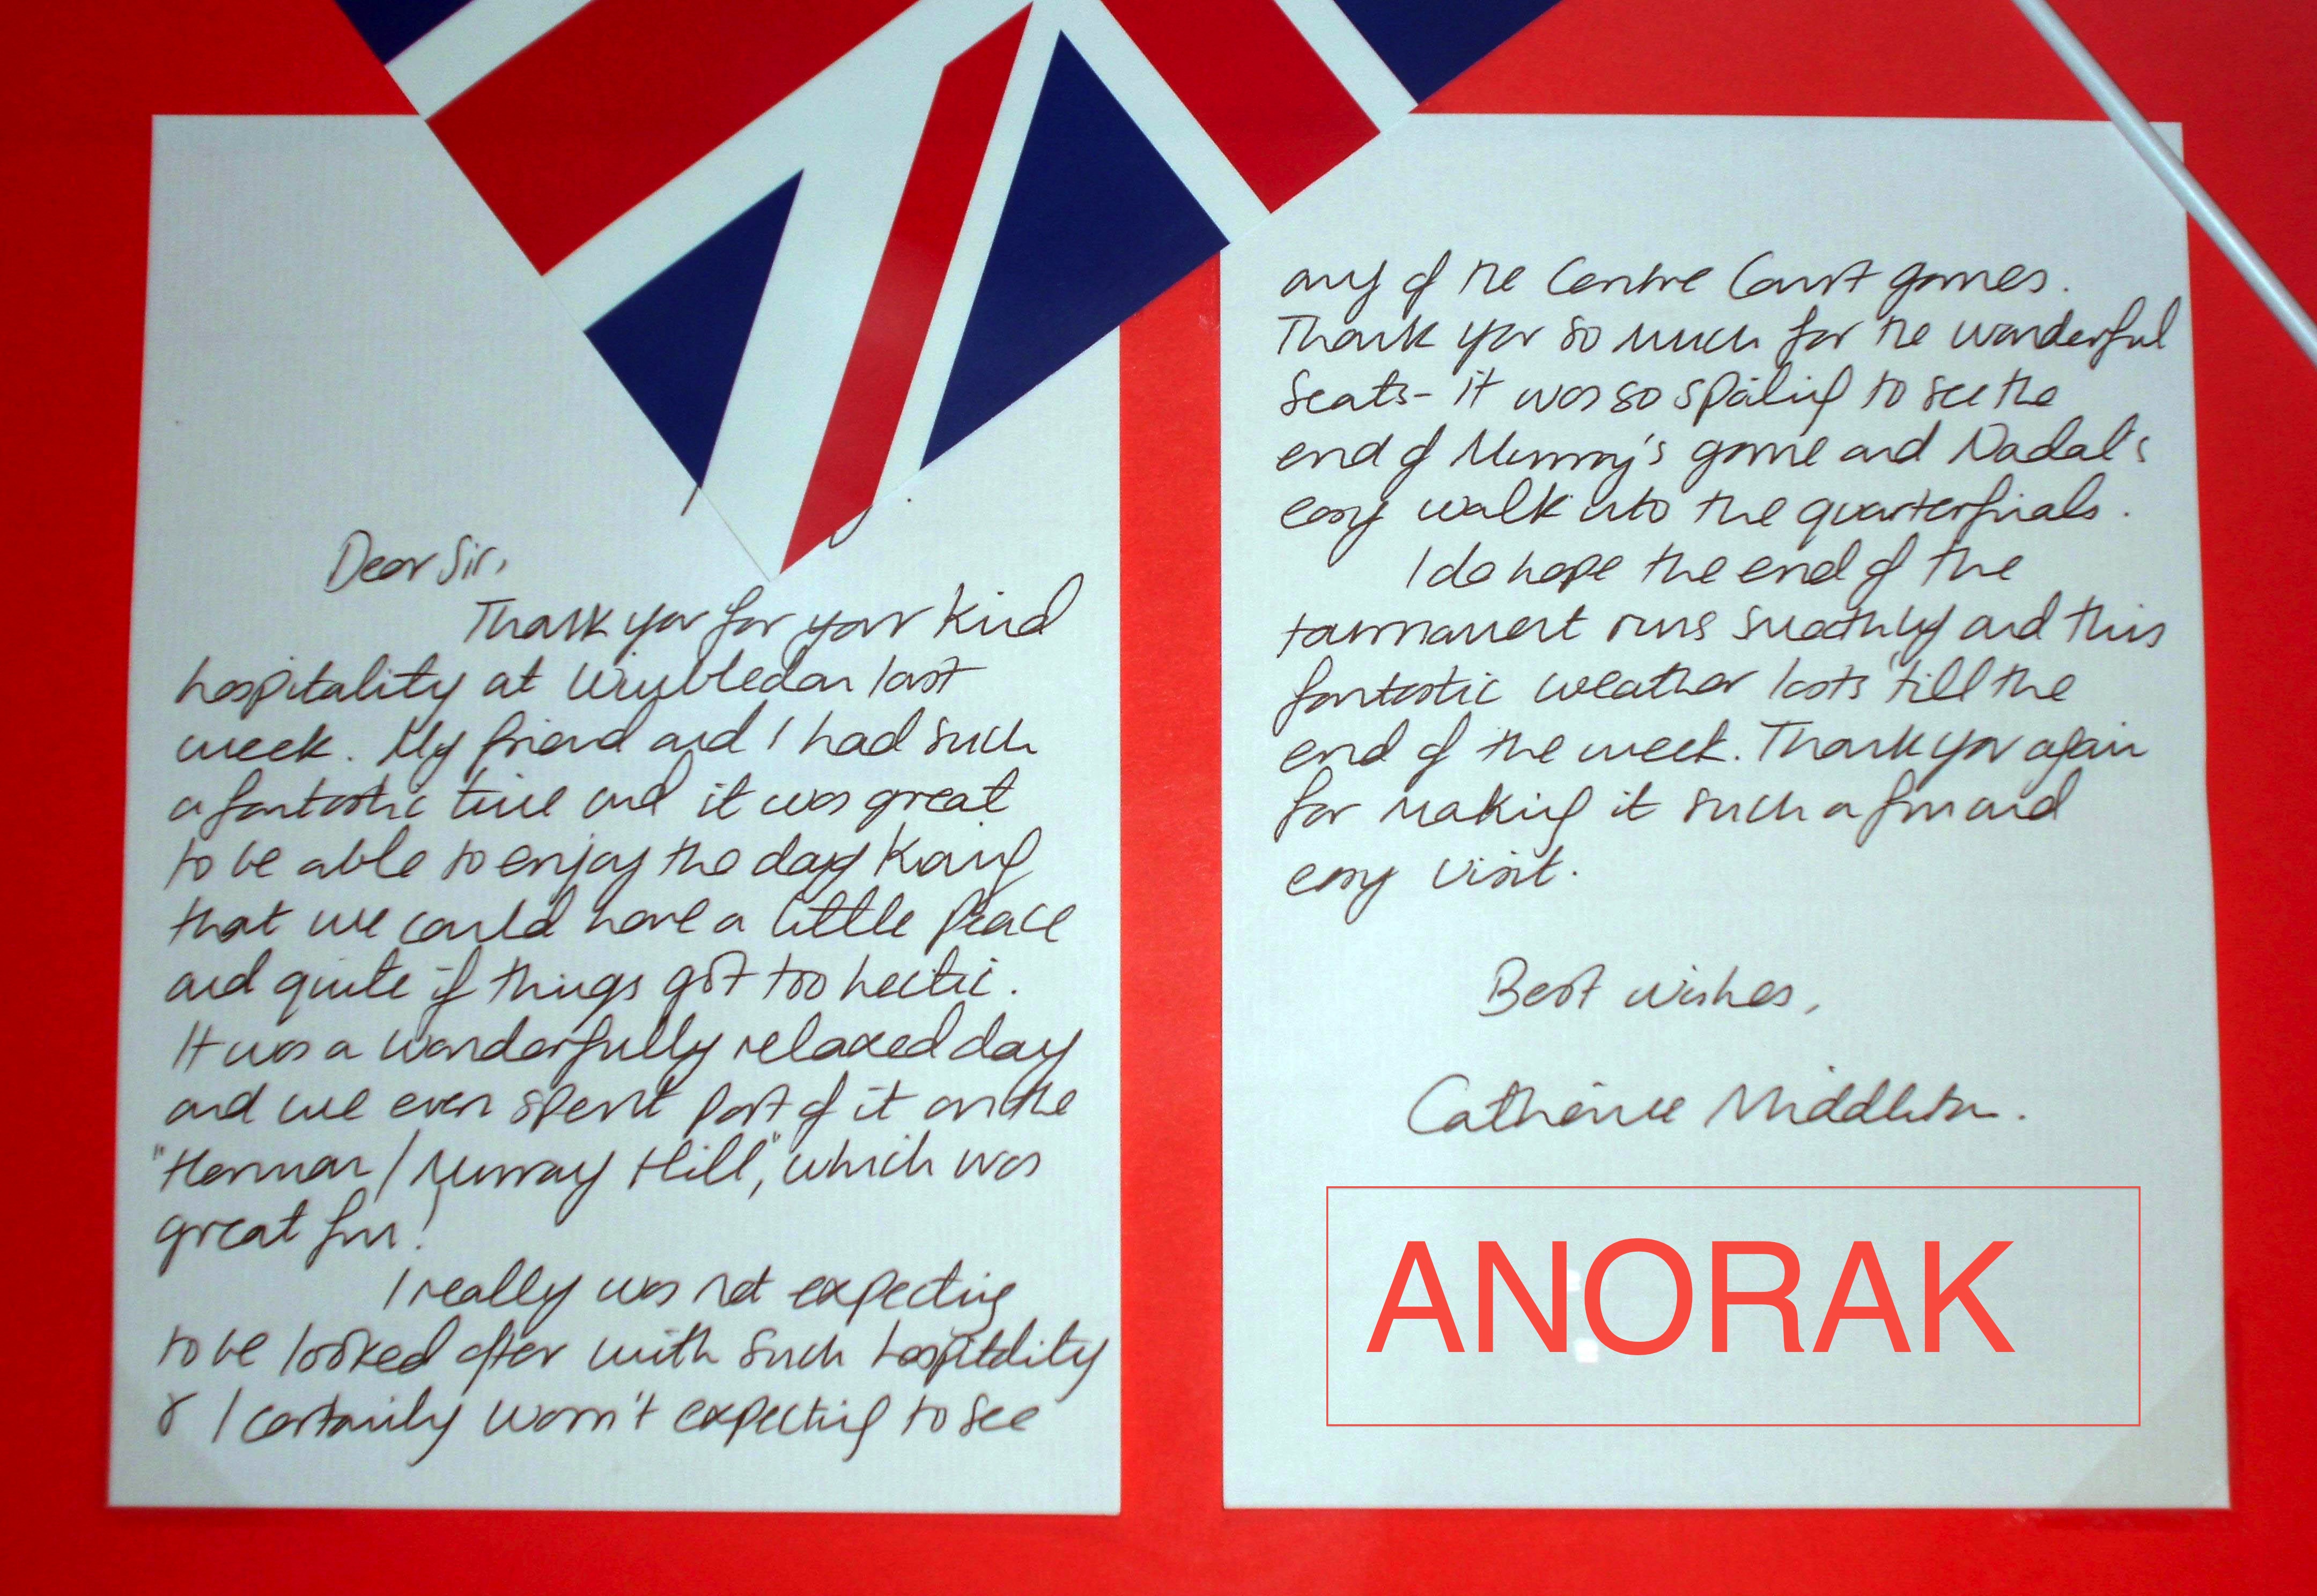 Dear Sir,
Thank you for your kind
hospitality at Wimbledon last
week. My friend and I had such
a fantastic time and it was great
to be able to enjoy the day knowing
that we could have a little peace
and quite if things got too hectic.
It was a wonderfully relaxed day
and we even spent part of it on the
"Henman / Murray Hill", which was
great fun!
I really was not expecting
to be looked after with such hospitality
& I certainly wasn't expecting to see
any of the Centre Court games.
Thank you so much for the wonderful
seats - it was so spoiling to see the
end of Murray's game and Nadal's
easy walk into the quarterfinals.
I do hope the end of the
tournament runs smoothly and this
fantastic weather lasts 'till the
end of the week. Thank you again
for making it such a fun and
easy visit.
Best wishes,
Catherine Middleton.
ANORAK